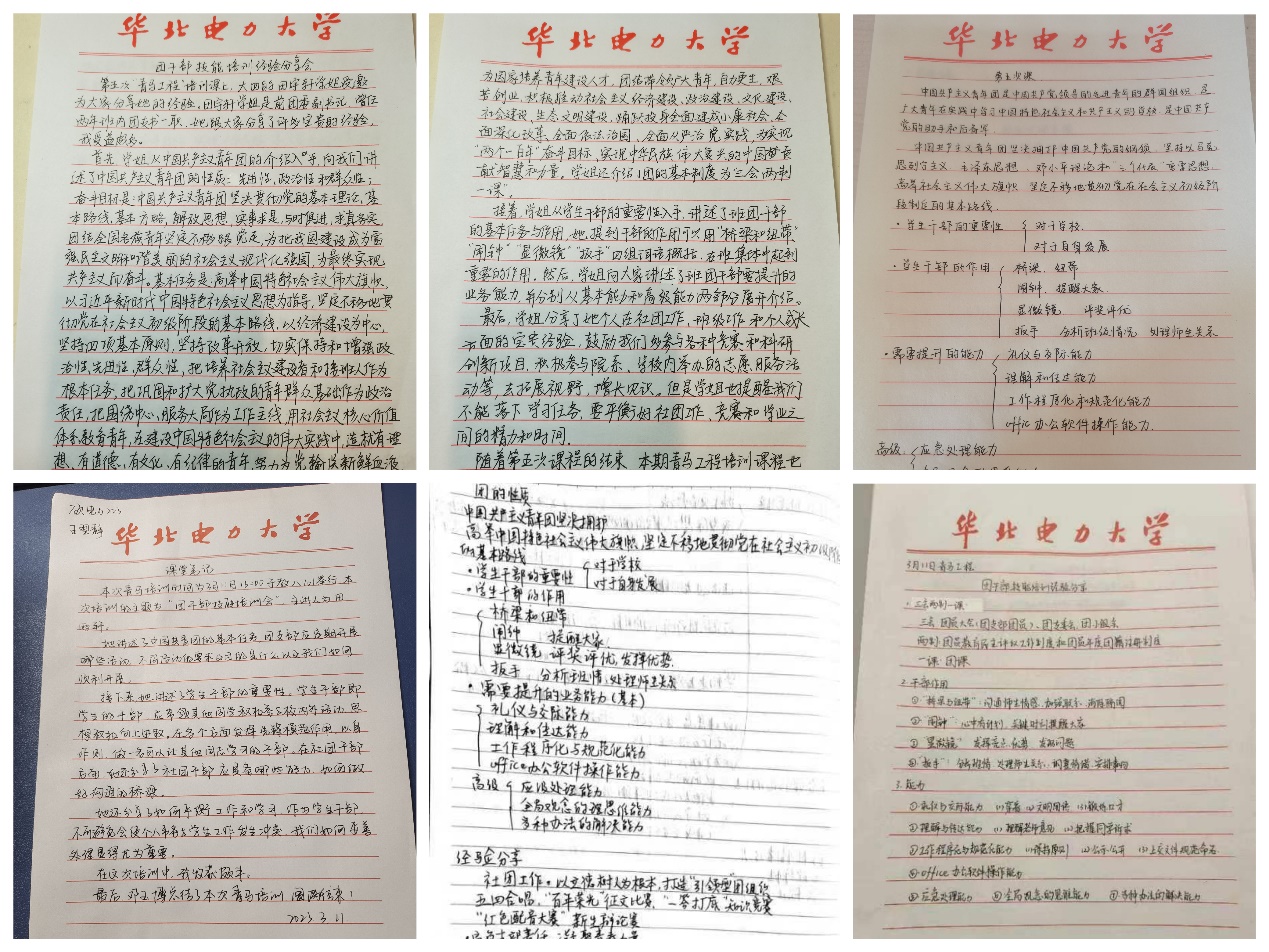 华北电力大学
团干部技能培训经验分享会
第五次“青马工程”培训课上,大四的田宇轩学姐受邀
为大家分享她的经验。田宇轩学姐是前团委副书记,曾任
两年班内团支书一职,她跟大家分享了许多宝贵的经验,
我受益颇多。
首先,学姐从中国共产主义青年团的介绍入手,向我们讲
述了中国共产主义青年团的性质:先进性,政治性和群众性;
奋斗目标是:中国共产主义青年团坚决贯彻党的基本理论,基
本路线,基本方略,解放思想,实事求是,与时俱进,求真务实
团结全国各族青年坚定不移跟党走,为把我国建设成为富
强民主文明和谐美丽的社会主义现代化强国,为最终实现
共产主义而奋斗。基本任务是:高举中国特色社会主义伟大旗帜,
以习近平新时代中国特色社会主义思想为指导,坚定不移地贯
彻党在社会主义初级阶段的基本路线,以经济建设为中心,
坚持四项基本原则,坚持改革开放,切实保持和增强政
治性,先进性,群众性,把培养社会主义建设者和接班人作为
根本任务,把巩固和扩大党执政的青年群众基础作为政治
责任,把围绕中心、服务大局作为工作主线,用社会主义核心价值
体系教育青年,在建设中国特色社会主义的伟大实践中,造就有理
想、有道德、有文化、有纪律的青年,努力为党输送新鲜血液
华北电力大学
为国家培养青年建设人才,团结带领广大青年,自力更生、艰
苦创业,积极推动社会主义经济建设、政治建设、文化建设、
社会建设、生态文明建设,踊跃投身全面建成小康社会、全
面深化改革、全面依法治国、全面从严治党实践,为实现
“两个一百年”奋斗目标,实现中华民族伟大复兴的中国梦贡
献智慧和力量。学姐还介绍了团的基本制度为“三会两制
一课”。
接着,学姐从学生干部的重要性入手,讲述了班团干部
的基本任务与作用,她提到干部的作用可以用“桥梁和纽带”
“闹钟”“显微镜”“扳手”四组词语概括,在班集体中起到
重要的作用。然后,学姐向大家讲述了班团干部要提升的
业务能力,并分别从基本能力和高级能力两部分展开介绍。
最后,学姐分享了她个人在社团工作、班级工作和个人成长
方面的宝贵经验,鼓励我们多参与各种竞赛和科研
创新项目,积极参与院系、学校内举办的志愿服务活
动等,去拓展视野,增长见识。但是学姐也提醒我们
不能落下学习任务,要平衡好社团工作、竞赛和学业之
间的精力和时间。
随着第五次课程的结束,本期青马工程培训课程也
华北电力大学
第五次课
中国共产主义青年团是中国共产党领导的先进青年的群团组织,是
广大青年在实践中学习中国特色社会主义和共产主义的学校,是中国共产
党的助手和后备军。
中国共产主义青年团坚决拥护中国共产党的纲领,坚持以马克
思列宁主义、毛泽东思想、邓小平理论和“三个代表”重要思想,
高举社会主义伟大旗帜,坚定不移地贯彻党在社会主义初级阶
段制定的基本路线。
·学生干部的重要性 对于学校
对于自身发展
·学生干部的作用 桥梁、纽带
闹钟、提醒大家
显微镜、评奖评优
扳手 分析班级情况 处理师生关系
·需要提升的能力 礼仪与交际能力
理解和传达能力
工作程序化和规范化能力
office办公软件操作能力
高级 应急处理能力
华北电力大学
课堂笔记
本次青马培训时间为3月11日15:45于教入101举行,本
次培训的主题为“团干部技能培训会”,主讲人为田
宇轩。
她讲述了中国共青团的基本任务,团支部应定期开展
哪些活动,不同活动的要求与目的是什么,以及我们如何
顺利开展。
接下来,她讲述了学生干部的重要性,学生干部即
学生的干部,应率领其他同学积极参与校内外活动,思
想积极向上进取,在各个方面发挥先锋模范作用,以身
作则,做一名可以让其他同志学习的干部。在社团干部
方面,她还分享了社团干部应具有哪些能力,如何做
好沟通的桥梁。
她还分享了如何平衡工作和学习,作为学生干部
不可避免会使个人事务与学生工作发生冲突,我们如何妥善
处理显得尤为重要。
在这次培训中,我收获颇丰。
最后,邓玉博总结了本次青马培训,圆满结束!
2023.3.11
团的性质
中国共产主义青年团坚决拥护
高举中国特色社会主义伟大旗帜,坚定不移地贯彻党在社会主义初级阶段
的基本路线
·学生干部的重要性 对于学校
对于自身发展
·学生干部的作用
桥梁和纽带
闹钟 提醒大家
显微镜,评奖评优,发挥优势
扳手,分析班情,处理师生关系
·需要提升的业务能力(基本)
礼仪与交际能力
理解和传达能力
工作程序化与规范化能力
office办公软件操作能力
高级 应急处理能力
全局观念的理思维能力
多种办法的解决能力
经验分享
社团工作:以立德树人为根本,打造“引领型”团组织
五四合唱,“百年荣光”征文比赛,“一零打底”知识竞赛
“红色配音大赛”新生辩论赛
华北电力大学
3月11日青马工程
团干部技能培训经验分享
1.三会两制一课
三会:团员大会(团支部团员)、团支委会、团小组会
两制:团员教育民主评议工作制度和团员年度团籍注册制度
一课:团课
2.干部作用
①“桥梁与纽带”:沟通师生情感,加强联系,消除隔阂
②“闹钟”:心中有计划,关键时刻提醒大家
③“显微镜”:发挥亮点、优势,发现问题
④“扳手”:分析班情,处理师生关系,调整情绪,安排事项
3.能力
①礼仪与交际能力 (1)穿着 (2)文明用语 (3)锻炼口才
②理解与传达能力 (1)理解老师意思 (2)把握同学诉求
③工作程序化与规范化能力 (1)保持原则 (2)公示公开 (3)上交文件规范命名
④office办公软件操作能力
⑤应急处理能力 ⑥全局观念的思维能力 ⑦多种办法的解决能力